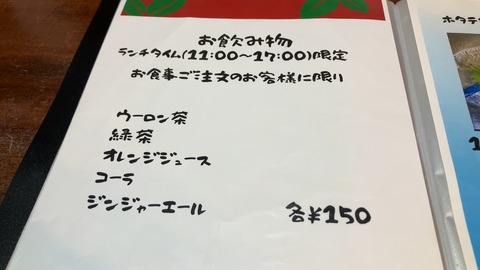 お飲み物
ランチタイム(11:00～17:00)限定
お食事ご注文のお客様に限り
ウーロン茶
緑茶
オレンジジュース
コーラ
ジンジャーエール 各¥150
ホタテ